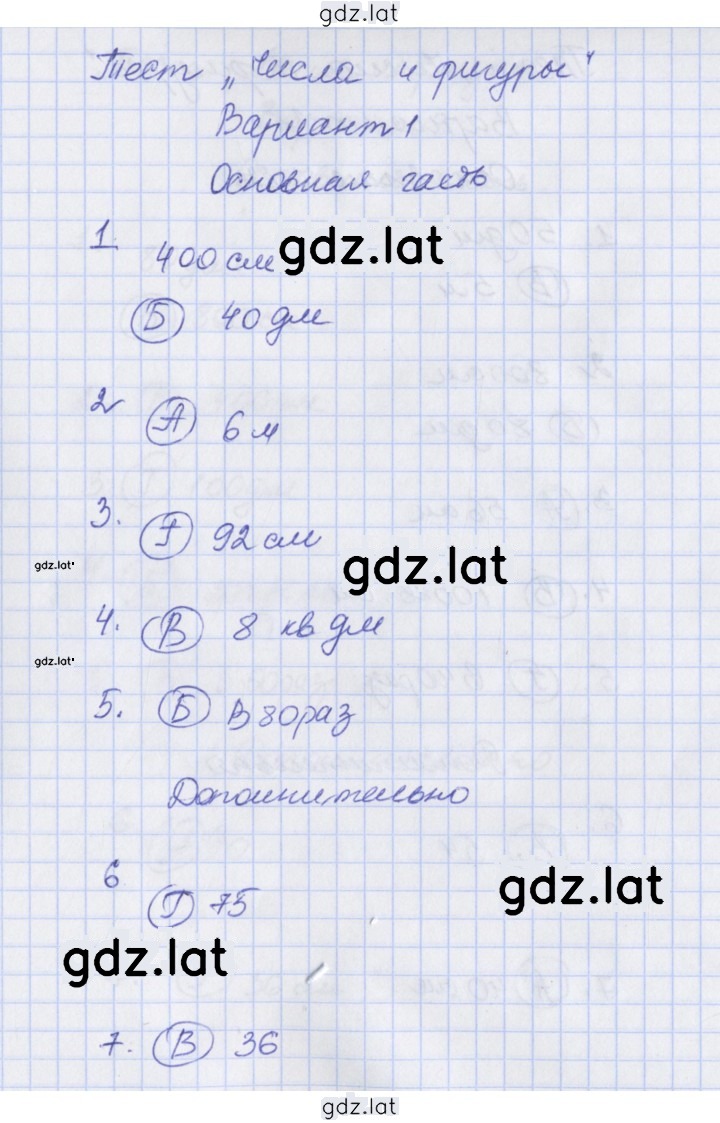 gdz.lat
Тест „Числа и фигуры"
Вариант 1
Основная часть
1.
400 см gdz.lat
Б 40 дм
2 А 6 м
3. Г 92 см
gdz.lat gdz.lat
4. В 8 кв дм
gdz.lat
5. Б В 80 раз
Дополнительно
6
gdz.lat
Г 75
gdz.lat
7. В 36
gdz.lat